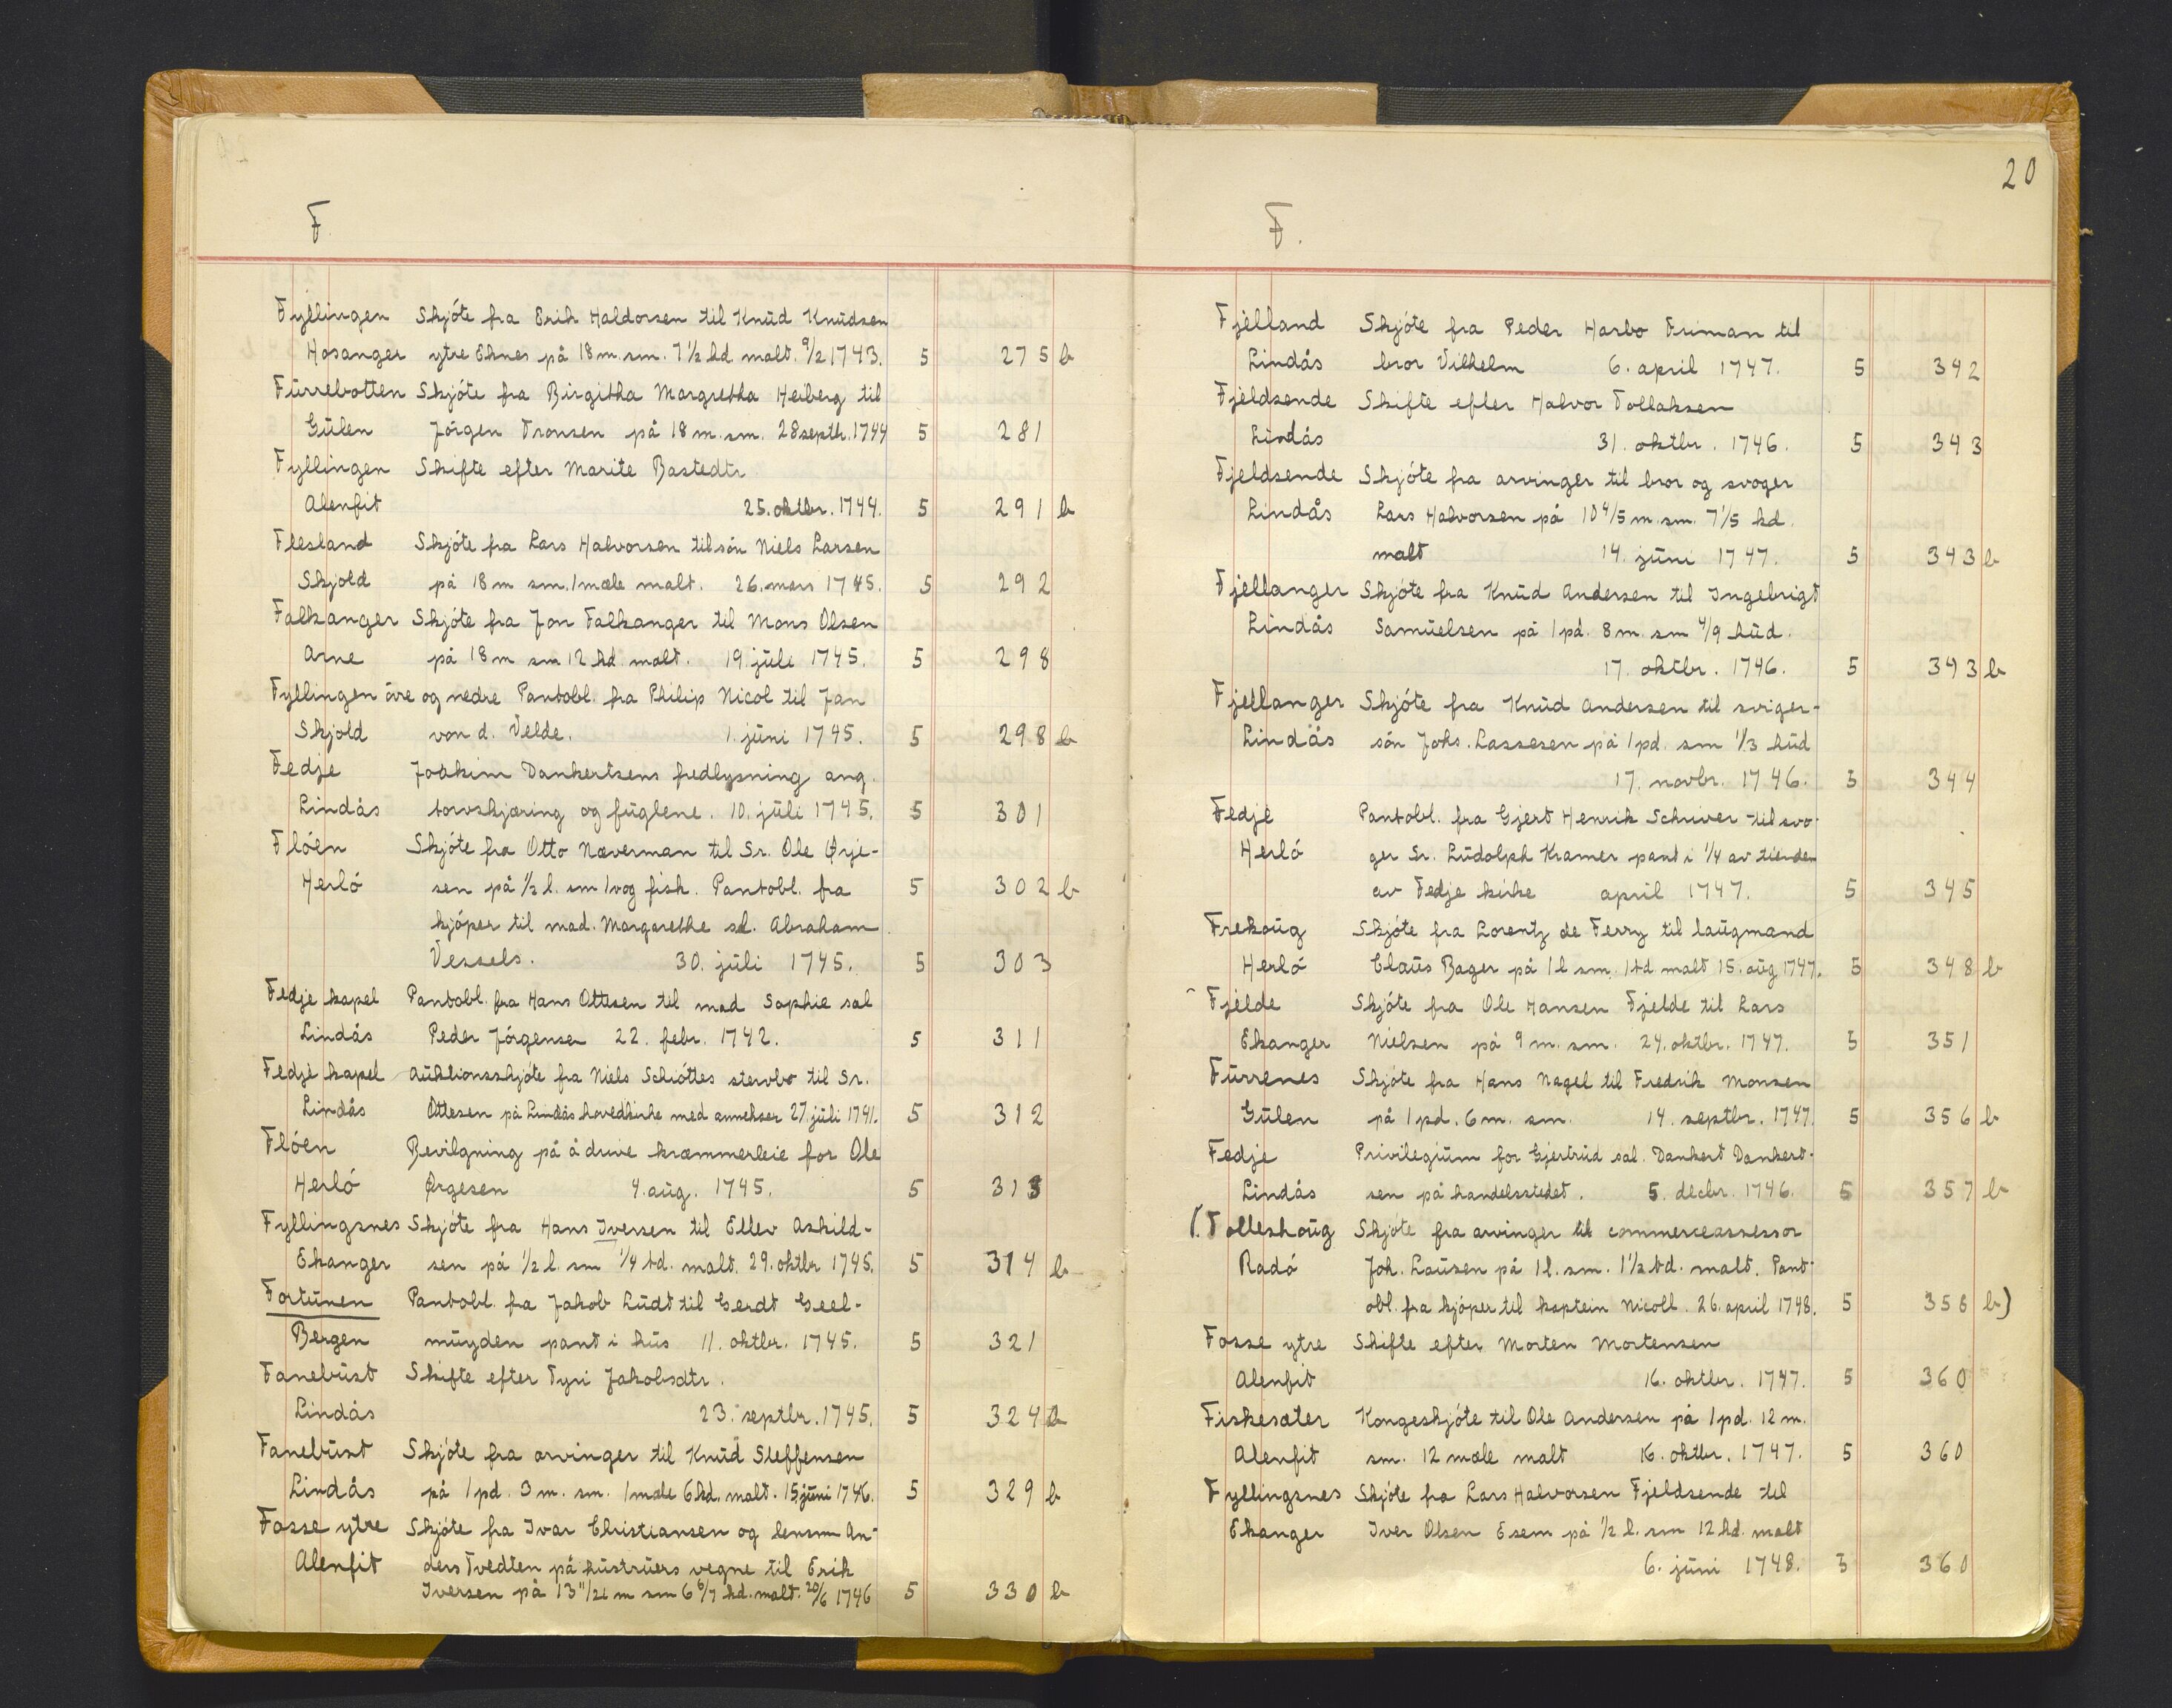 F.
Fyllingen Skjóte fra Erik Haldorsen til Knŭd Knŭdsen
Hosanger ytre Eknes på 18 m. sm. 7 ½ kd malt. 9/2 1743. 5 275 b
Fŭrrebotten Skjóte fra Birgitha Margretha Heiberg til
Gŭlen Jórgen Tronsen på 18 m. sm. 28 septbr. 1744 5 281
Fyllingen Skifte efter Marite Bastedtr
Alenfit 25. oktbr. 1744. 5 291 b
Flesland Skjóte fra Lars Halvorsen til són Niels Larsen
Skjold på 18 m sm. 1 mæle malt. 26. mars 1745. 5 292
Falkanger Skjóte fra Jon Falkanger til Mons Olsen
Arne på 18 m sm 12 kd. malt. 19. jŭli 1745. 5 298
Fyllingen óvre og nedre Pantobl. fra Philip Nicol til Jan
Skjold von d. Velde. 1. jŭni 1745. 5 298 b
Fedje Joakim Dankertsens fredlysning ang.
Lindås torvskjæring og fŭglene. 10. jŭli 1745. 5 301
Flóen Skjóte fra Otto Næverman til Sr. Ole Ørje-
Herló sen på ½ l. sm 1 vog fisk. Pantobl. fra 5 302 b
kjóper til mad. Margarethe sl. Abraham
Vessels. 30. jŭli 1745. 5 303
Fedje kapel Pantobl. fra Hans Ottesen til mad Sophie sal
Lindås Peder Jórgensen 22. febr. 1742. 5 311
Fedje kapel Aŭktionsskjóte fra Niels Schióttes stervbo til Sr.
Lindås Ottesen på Lindås hovedkirke med annekser 27. jŭli 1741. 5 312
Flóen Bevilgning på å drive kræmmerleie for Ole
Herló Ørgesen 4. aŭg. 1745. 5 313
Fyllingsnes Skjóte fra Hans Iversen til Ellev Askild-
Ekanger sen på ½ l. sm ¼ td. malt. 29. oktbr 1745. 5 314 b
Fortŭnen Pantobl. fra Jakob Lŭdt til Gerdt Geel-
Bergen mŭyden pant i hŭs 11. oktbr. 1745. 5 321
Fanebŭst Skifte efter Tyri Jakobsdtr.
Lindås 23. septbr. 1745. 5 324 b
Fanebŭst Skjóte fra arvinger til Knŭd Steffensen
Lindås på 1 pd. 3 m. sm. 1 mæle 6 kd. malt. 15 jŭni 1746. 5 329 b
Fosse ytre Skjóte fra Ivar Christiansen og lensm An-
Alenfit ders Tvedten på hŭstrŭers vegne til Erik
Iversen på 13 11/21 m sm 6 6/7 kd. malt. 20/6 1746 5 330 b
20
F.
Fjelland Skjóte fra Peder Harbo Friman til
Lindås bror Vilhelm 6. april 1747. 5 342
Fjeldsende Skifte efter Halvor Tollaksen
Lindås 31. oktbr. 1746. 5 343
Fjeldsende Skjóte fra arvinger til bror og svoger
Lindås Lars Halvorsen på 10 4/5 m. sm. 7 1/5 kd.
malt 14. jŭni 1747. 5 343 b
Fjellanger Skjóte fra Knŭd Andersen til Ingebrigt
Lindås Samŭelsen på 1 pd. 8 m. sm 4/9 hŭd.
17. oktbr. 1746. 5 343 b
Fjellanger Skjóte fra Knŭd Andersen til sviger-
Lindås són Johs. Lassesen på 1 pd. sm 1/3 hŭd
17. novbr. 1746. 5 344
Fedje Pantobl. fra Gjert Henrik Schrŭver til svo-
Herló ger Sr. Lŭdolph Kramer pant i ¼ av tienden
av Fedje kirke april 1747. 5 345
Frekaŭg Skjóte fra Lorentz de Ferry til laŭgmand
Herló Claŭs Bager på 1 l sm. 1 td malt 15. aŭg 1747. 5 348 b
Fjelde Skjóte fra Ole Hansen Fjelde til Lars
Ekanger Nielsen på 9 m. sm. 24. oktbr. 1747. 5 351
Fŭrrenes Skjóte fra Hans Nagel til Fredrik Monsen
Gŭlen på 1 pd. 6 m. sm. 14. septbr. 1747. 5 356 b
Fedje Privilegiŭm for Gjertrŭd sal. Dankert Dankert-
Lindås sen på handelsstedet. 5. decbr. 1746. 5 357 b
(Folleshaŭg Skjóte fra arvinger til commerceassessor
Radó Joh. Laŭsen på 1 l. sm. 1 ½ td. malt. Pant-
obl. fra kjóper til kaptein Nicoll. 26. april 1748. 5 358 b)
Fosse ytre Skifte efter Morten Mortensen
Alenfit 16. oktbr. 1747. 5 360
Fiskesæter Kongeskjóte til Ole Andersen på 1 pd. 12 m.
Alenfit sm. 12 mæle malt 16. oktbr. 1747. 5 360
Fyllingsnes Skjóte fra Lars Halvorsen Fjeldsende til
Ekanger Iver Olsen Esem på ½ l. sm 12 kd. malt
6. jŭni 1748. 5 360